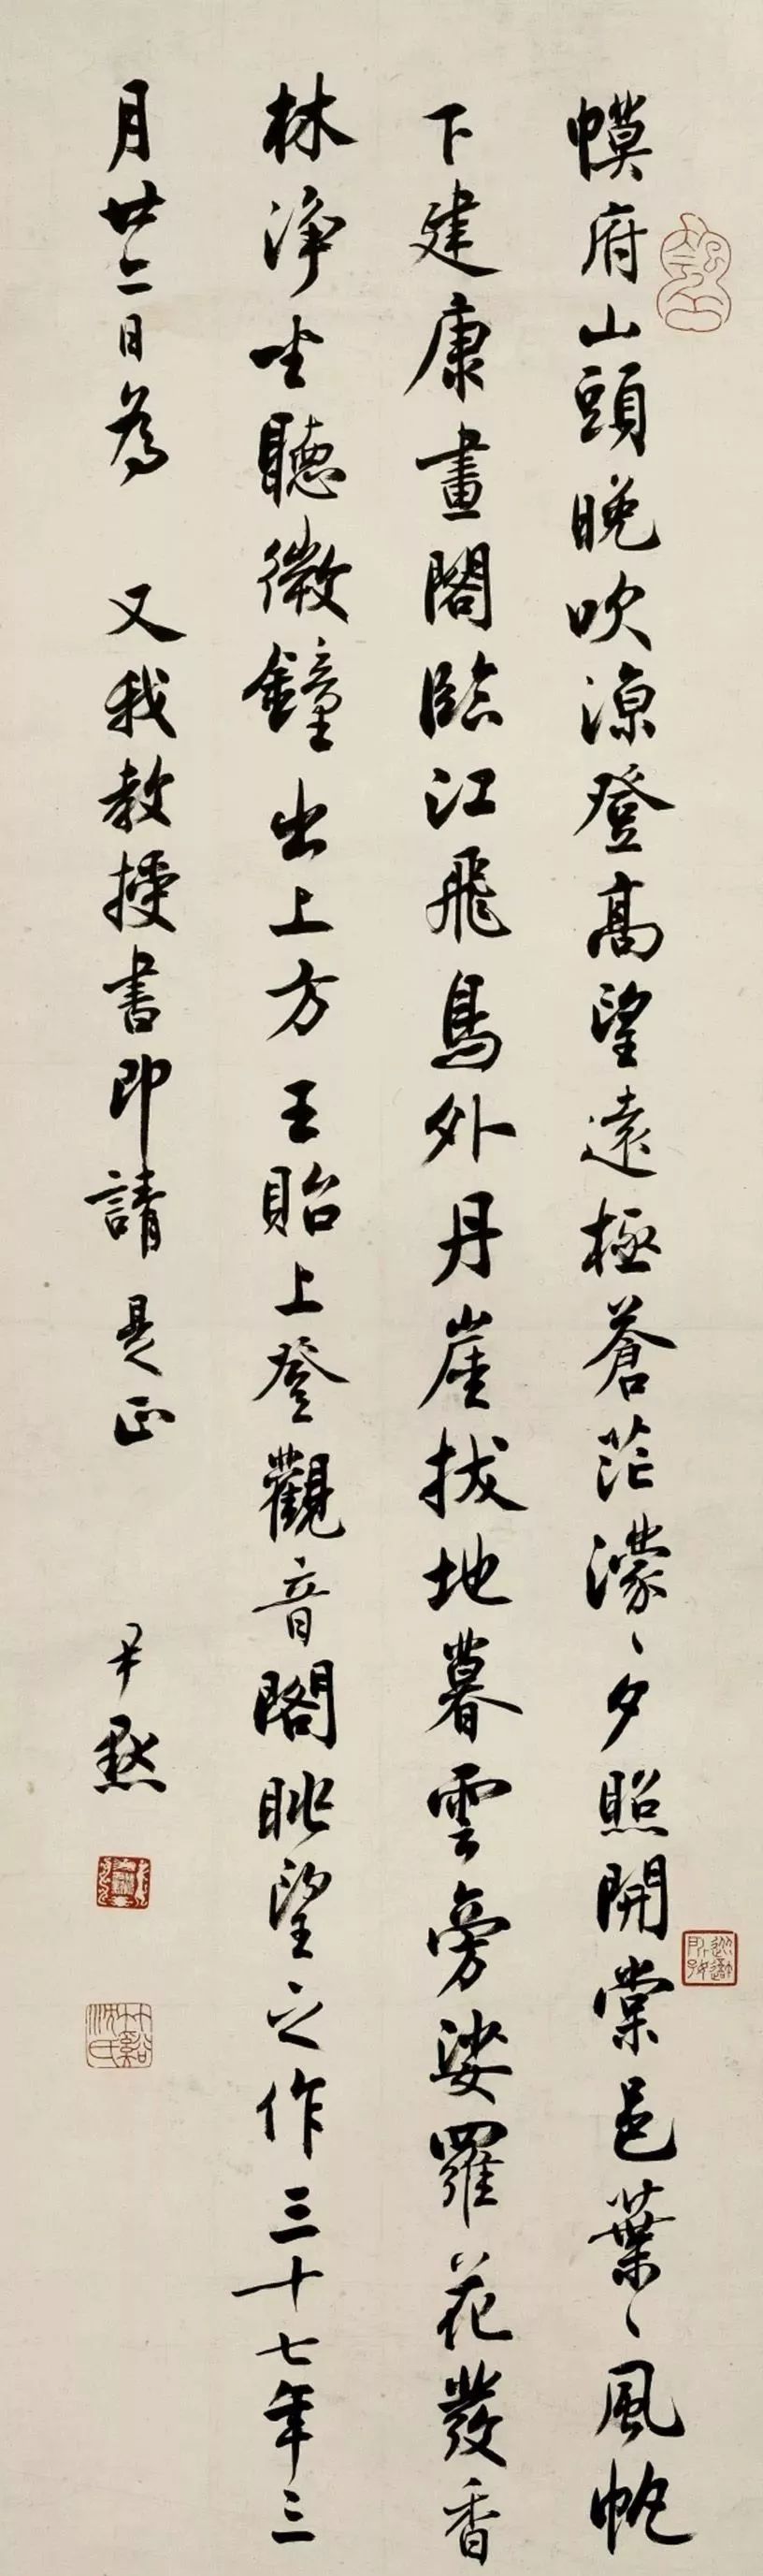 幙府山頭晚吹涼登高望遠極蒼茫濛〻夕照開棠邑葉〻風帆
下建康畫閣臨江飛鳥外丹崖拔地暮雲旁娑羅花發香
林淨坐聽微鐘出上方王貽上登觀音閣眺望之作三十七年三
月廿二日為 又我教授書即請 是正 尹默
竹谿沈氏